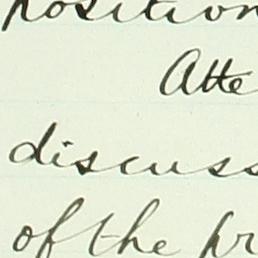 position
Atte
discuss
of the pr